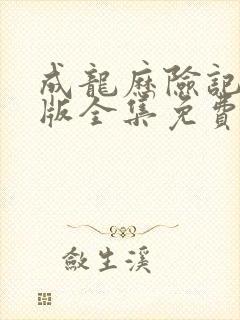 成龍歷險記
版全集免費
斂生溪